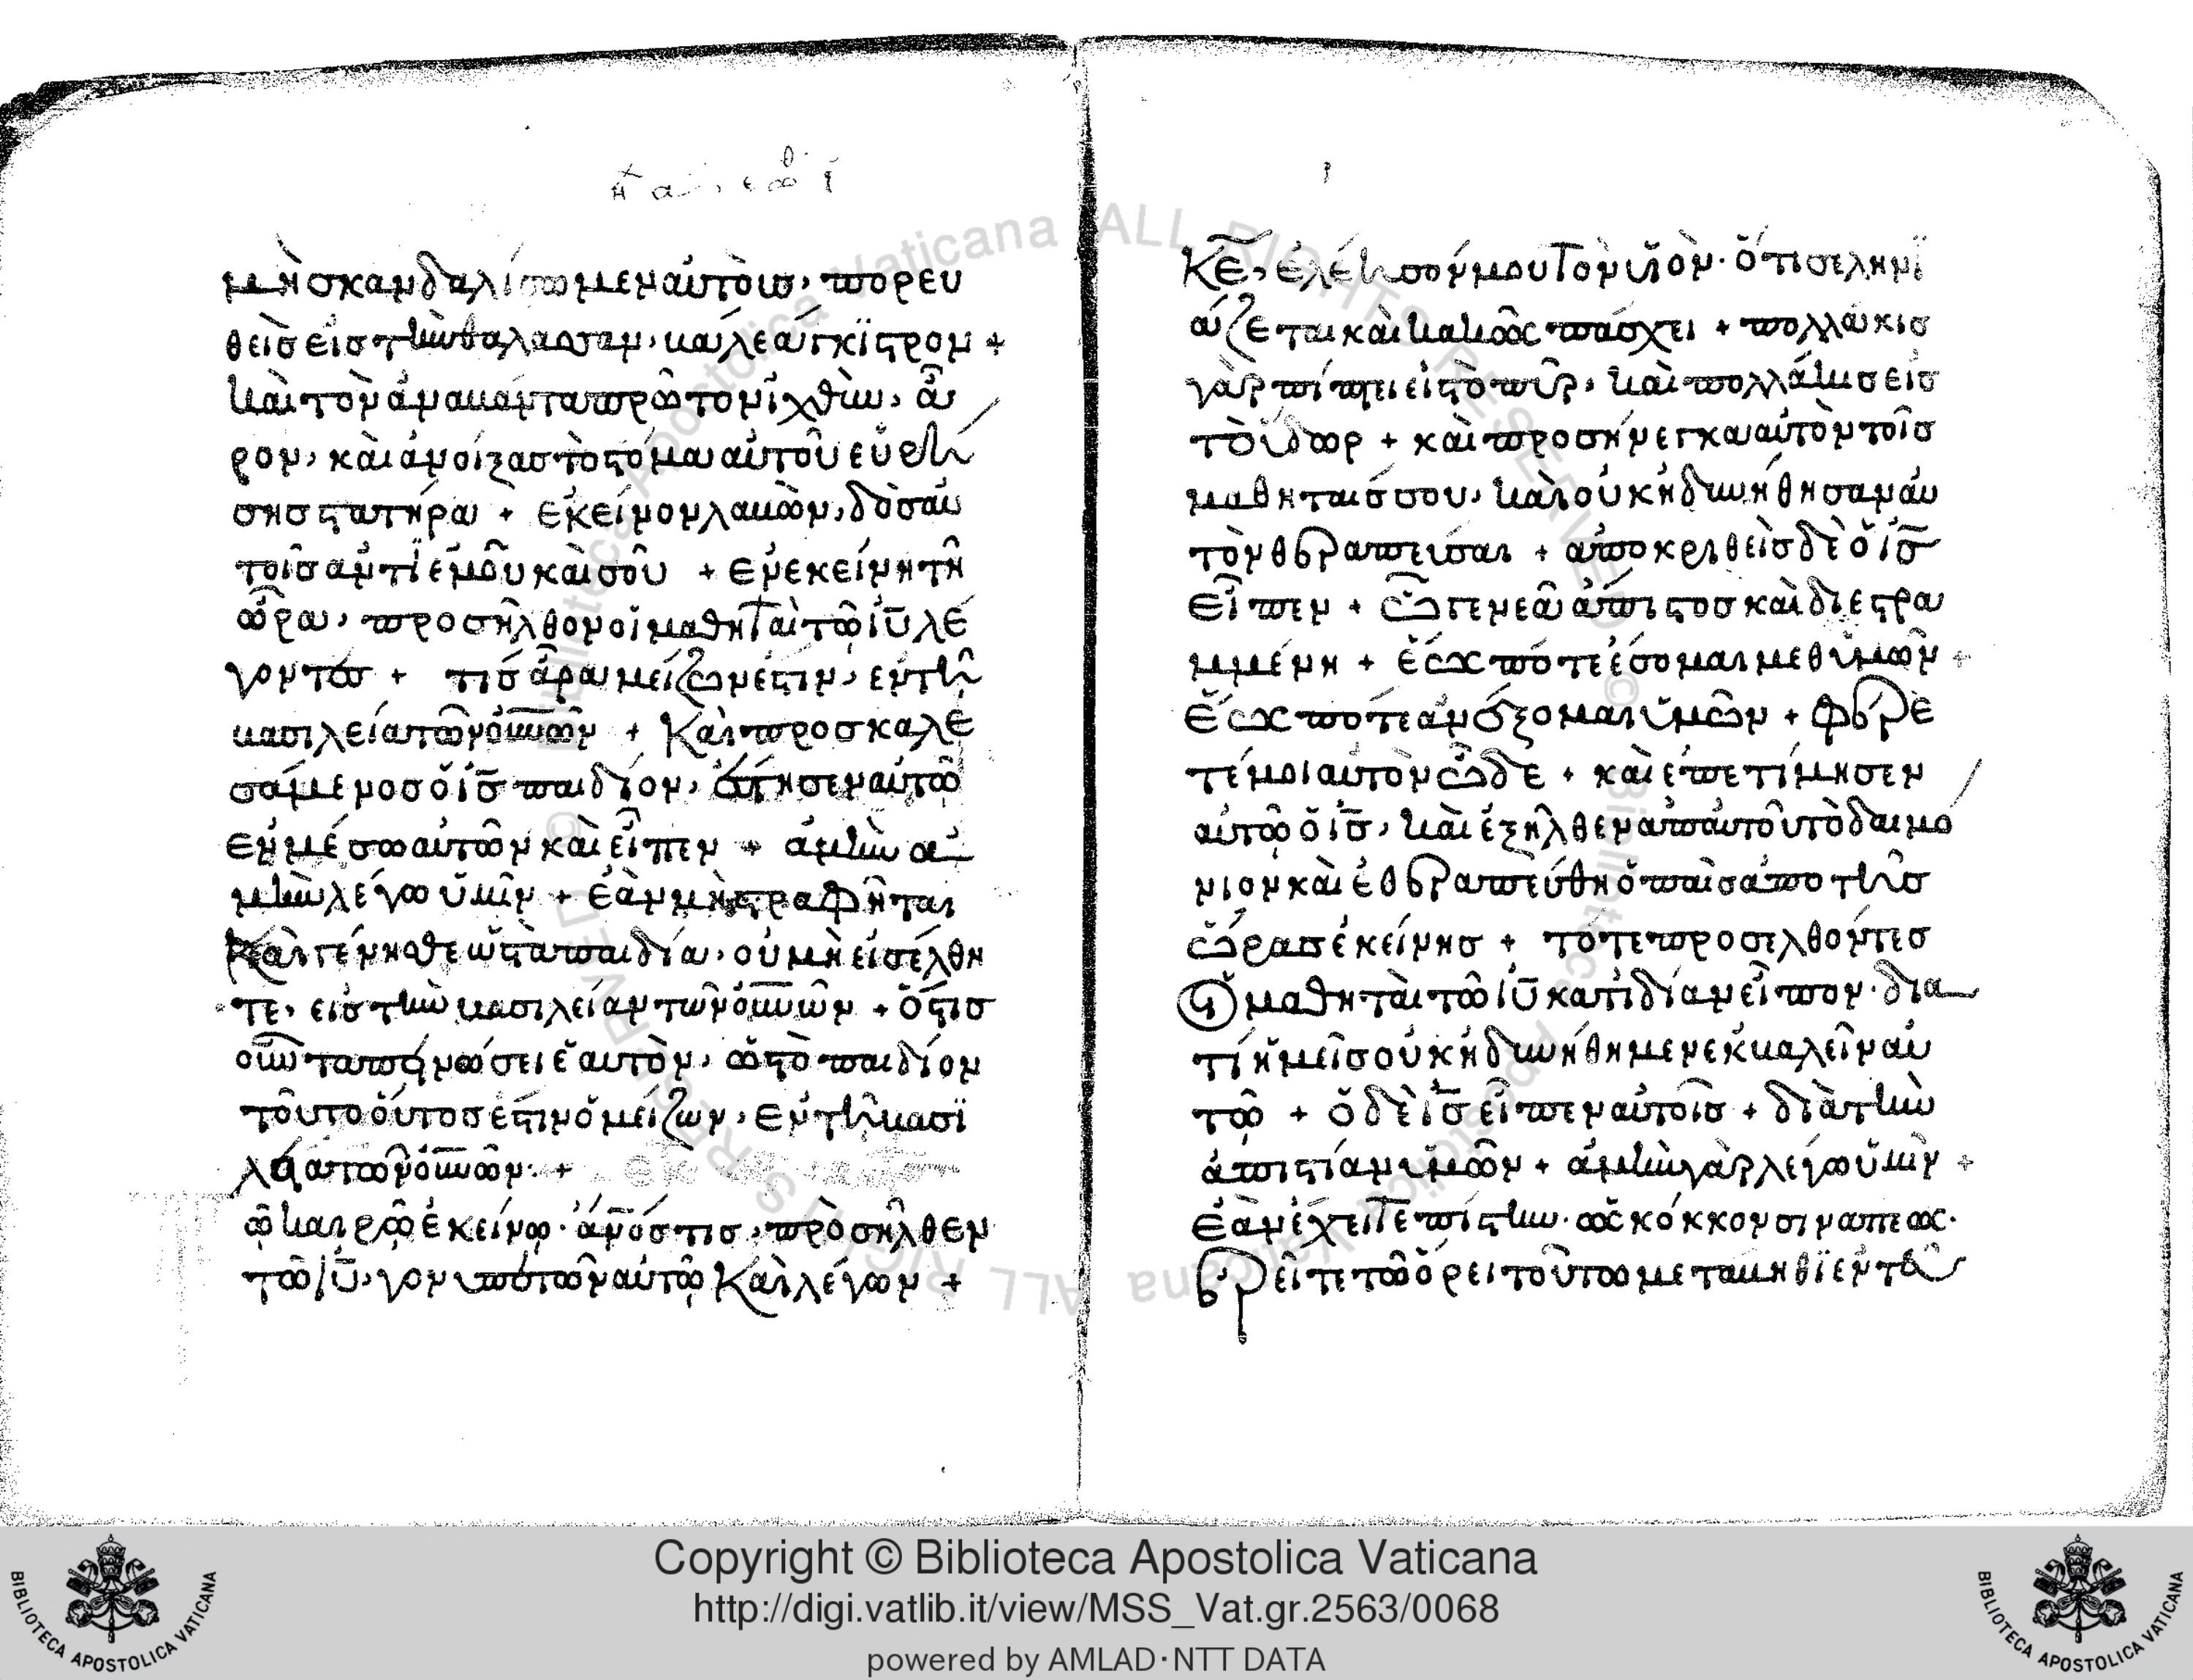 μὴ σκανδαλίσωμεν αὐτοὺσ, πορευ
θεὶσ εἰσ τὴν θάλασσαν, βάλε ἄγκϊστρον +
καὶ τὸν ἀναβάντα πρῶτον ἰχθὺν, ἆ
ρον, καὶ ἀνοίξασ τὸ στόμα αὐτοῦ εὑρή
σησ στατῆρα + ἐκεῖνον λαβὼν, δὸσ αὐ
τοῖσ ἀντὶ ἐμοῦ καὶ σοῦ + ἐν ἐκείνη τῆ
ὥρα, προσῆλθον οἱ μαθηταὶ τῶ ιυ λέ
γοντεσ + τίσ ἄρα μείζων ἐστιν, ἐν τῆ
βασιλεία τῶν οὐνῶν + Καὶ προσκαλε
σάμενοσ ὁ ισ παιδίον, ἔστησεν αὐτὸ
ἐν μέσω αὐτῶν καὶ εἶπεν + ἀμὴν ἀ
μὴν λέγω ὑμῖν + ἐὰν μὴ στραφῆται
Καὶ γένησθε ὡσ τὰ παιδία, οὐ μὴ εἰσέλθη
τε, εἰσ τὴν βασιλείαν τῶν οὐνῶν + ὅστισ
οὖν ταπεινώσει ἑαυτὸν, ὡσ τὸ παιδίον
τοῦτο οὗτοσ ἐστιν ὁ μείζων, ἐν τῆ βασϊ
λεία τῶν οὐνῶν +
ῶ καιρῶ ἐκείνω· ἀνόσ τισ, πρὸσῆλθεν
τῶ ιυ, γονυπετῶν αὐτῶ Καὶ λέγων +
Κε, ἐλέησόν μου τὸν υἱὸν· ὅτι σεληνϊ
άζεται καὶ κακῶσ πάσχει + πολλάκισ
γὰρ πίπτει εἰσ τὸ πῦρ, καὶ πολλάκισ εἰσ
τὸ ὕδωρ + καὶ προσήνεγκα αὐτὸν τοῖσ
μαθηταῖσ σου, καὶ οὐκ ἠδυνήθησαν αὐ
τὸν θεραπεῦσαι + ἀποκριθεὶσ δὲ ὁ ισ
εἶπεν + ὦ γενεὰ ἄπιστοσ καὶ διεστρα
μμένη + ἕωσ πότε ἔσομαι μεθ ὑμῶν +
ἕωσ πότε ἀνέξομαι ὑμῶν + φέρε
τέ μοι αὐτὸν ὧδε + καὶ ἐπετίμησεν
αὐτῶ ὁ ισ, καὶ ἐξῆλθεν ἀπ αὐτοῦ τὸ δαιμό
νιον καὶ ἐθεραπεύθη ὁ παῖσ ἀπο τῆσ
ὥρασ ἐκείνησ + τότε προσελθόντεσ
οἱ μαθηταὶ τῶ ιυ κατιδίαν εἶπον· δια
τί ἡμεῖσ οὐκ ἠδυνήθημεν ἐκβαλεῖν αὐ
τῶ + ὁ δὲ ισ εἶπεν αὐτοῖσ + διὰ τὴν
ἀπιστίαν ὑμῶν + ἀμὴν γὰρ λέγω ὑμῖν +
ἐὰν ἔχειτε πίστην· ὡσ κόκκον σινάπεωσ·
ἐρεῖτε τῶ ὄρει τούτω μεταβηθϊ ἐντεῦ
Copyright © Biblioteca Apostolica Vaticana
http://digi.vatlib.it/view/MSS_Vat.gr.2563/0068
powered by AMLAD·NTT DATA
BIBLIOTECA APOSTOLICA VATICANA
BIBLIOTECA APOSTOLICA VATICANA